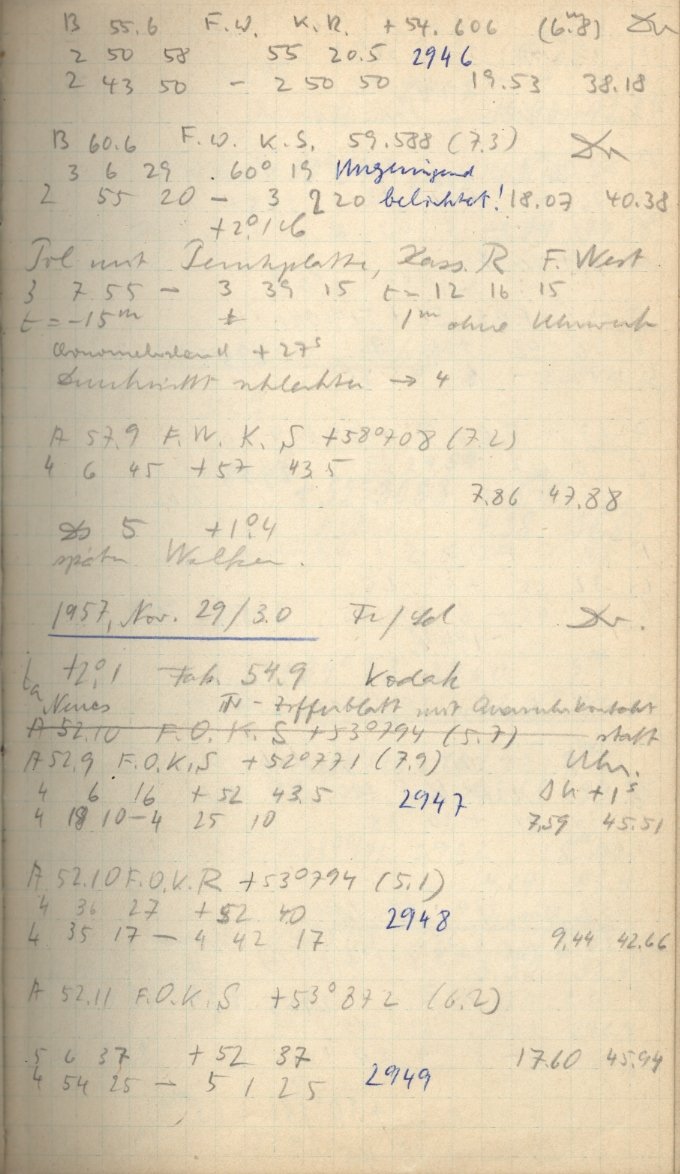 B 55.6 F.W. K.R. +54.606 (6.ᵐ8) Dr
2 50 58 55 20.5 2946
2 43 50 - 2 50 50 19.53 38.18
B 60.6 F.W. K.S. 59.588 (7.3) Dr
3 6 29 60° 19 Ungenügend
2 55 20 - 3 2 20 belichtet! 18.07 40.38
+2°,
Pol mit Kass. R F. West
3 7 55 - 3 39 15 t = 12 16 15
t = -15ᵐ t 1ᵐ ohne Uhrwerk
+27ˢ
Durchsicht schlechter → 4
A 57.9 F.W. K.S +58°708 (7.2)
4 6 45 +57 43.5
7.86 47.88
5 +1°,4
später Wolken.
1957, Nov. 29/30 Dr.
+2°,1 54.9 Kodak
Neues - Zifferblatt mit
A 52.10 F.O. K.S +53°794 (5.7) statt
A 52.9 F.O.K.S +52°771 (7.9) Uhr.
4 6 16 +52 43.5 2947 +1ˢ
4 18 10 - 4 25 10 7.59 45.51
A 52.10 F.O.K.R +53°794 (5.1)
4 36 27 +52 40 2948
4 35 17 - 4 42 17 9,44 42.66
A 52.11 F.O.K.S +53°872 (6.2)
5 6 37 +52 37 17.60 45.94
4 54 25 - 5 1 25 2949